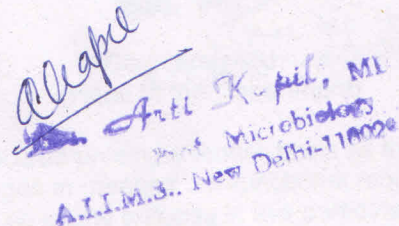 Arti K pil, MD
Prof Microbiology
A.I.I.M.S., New Delhi-110029